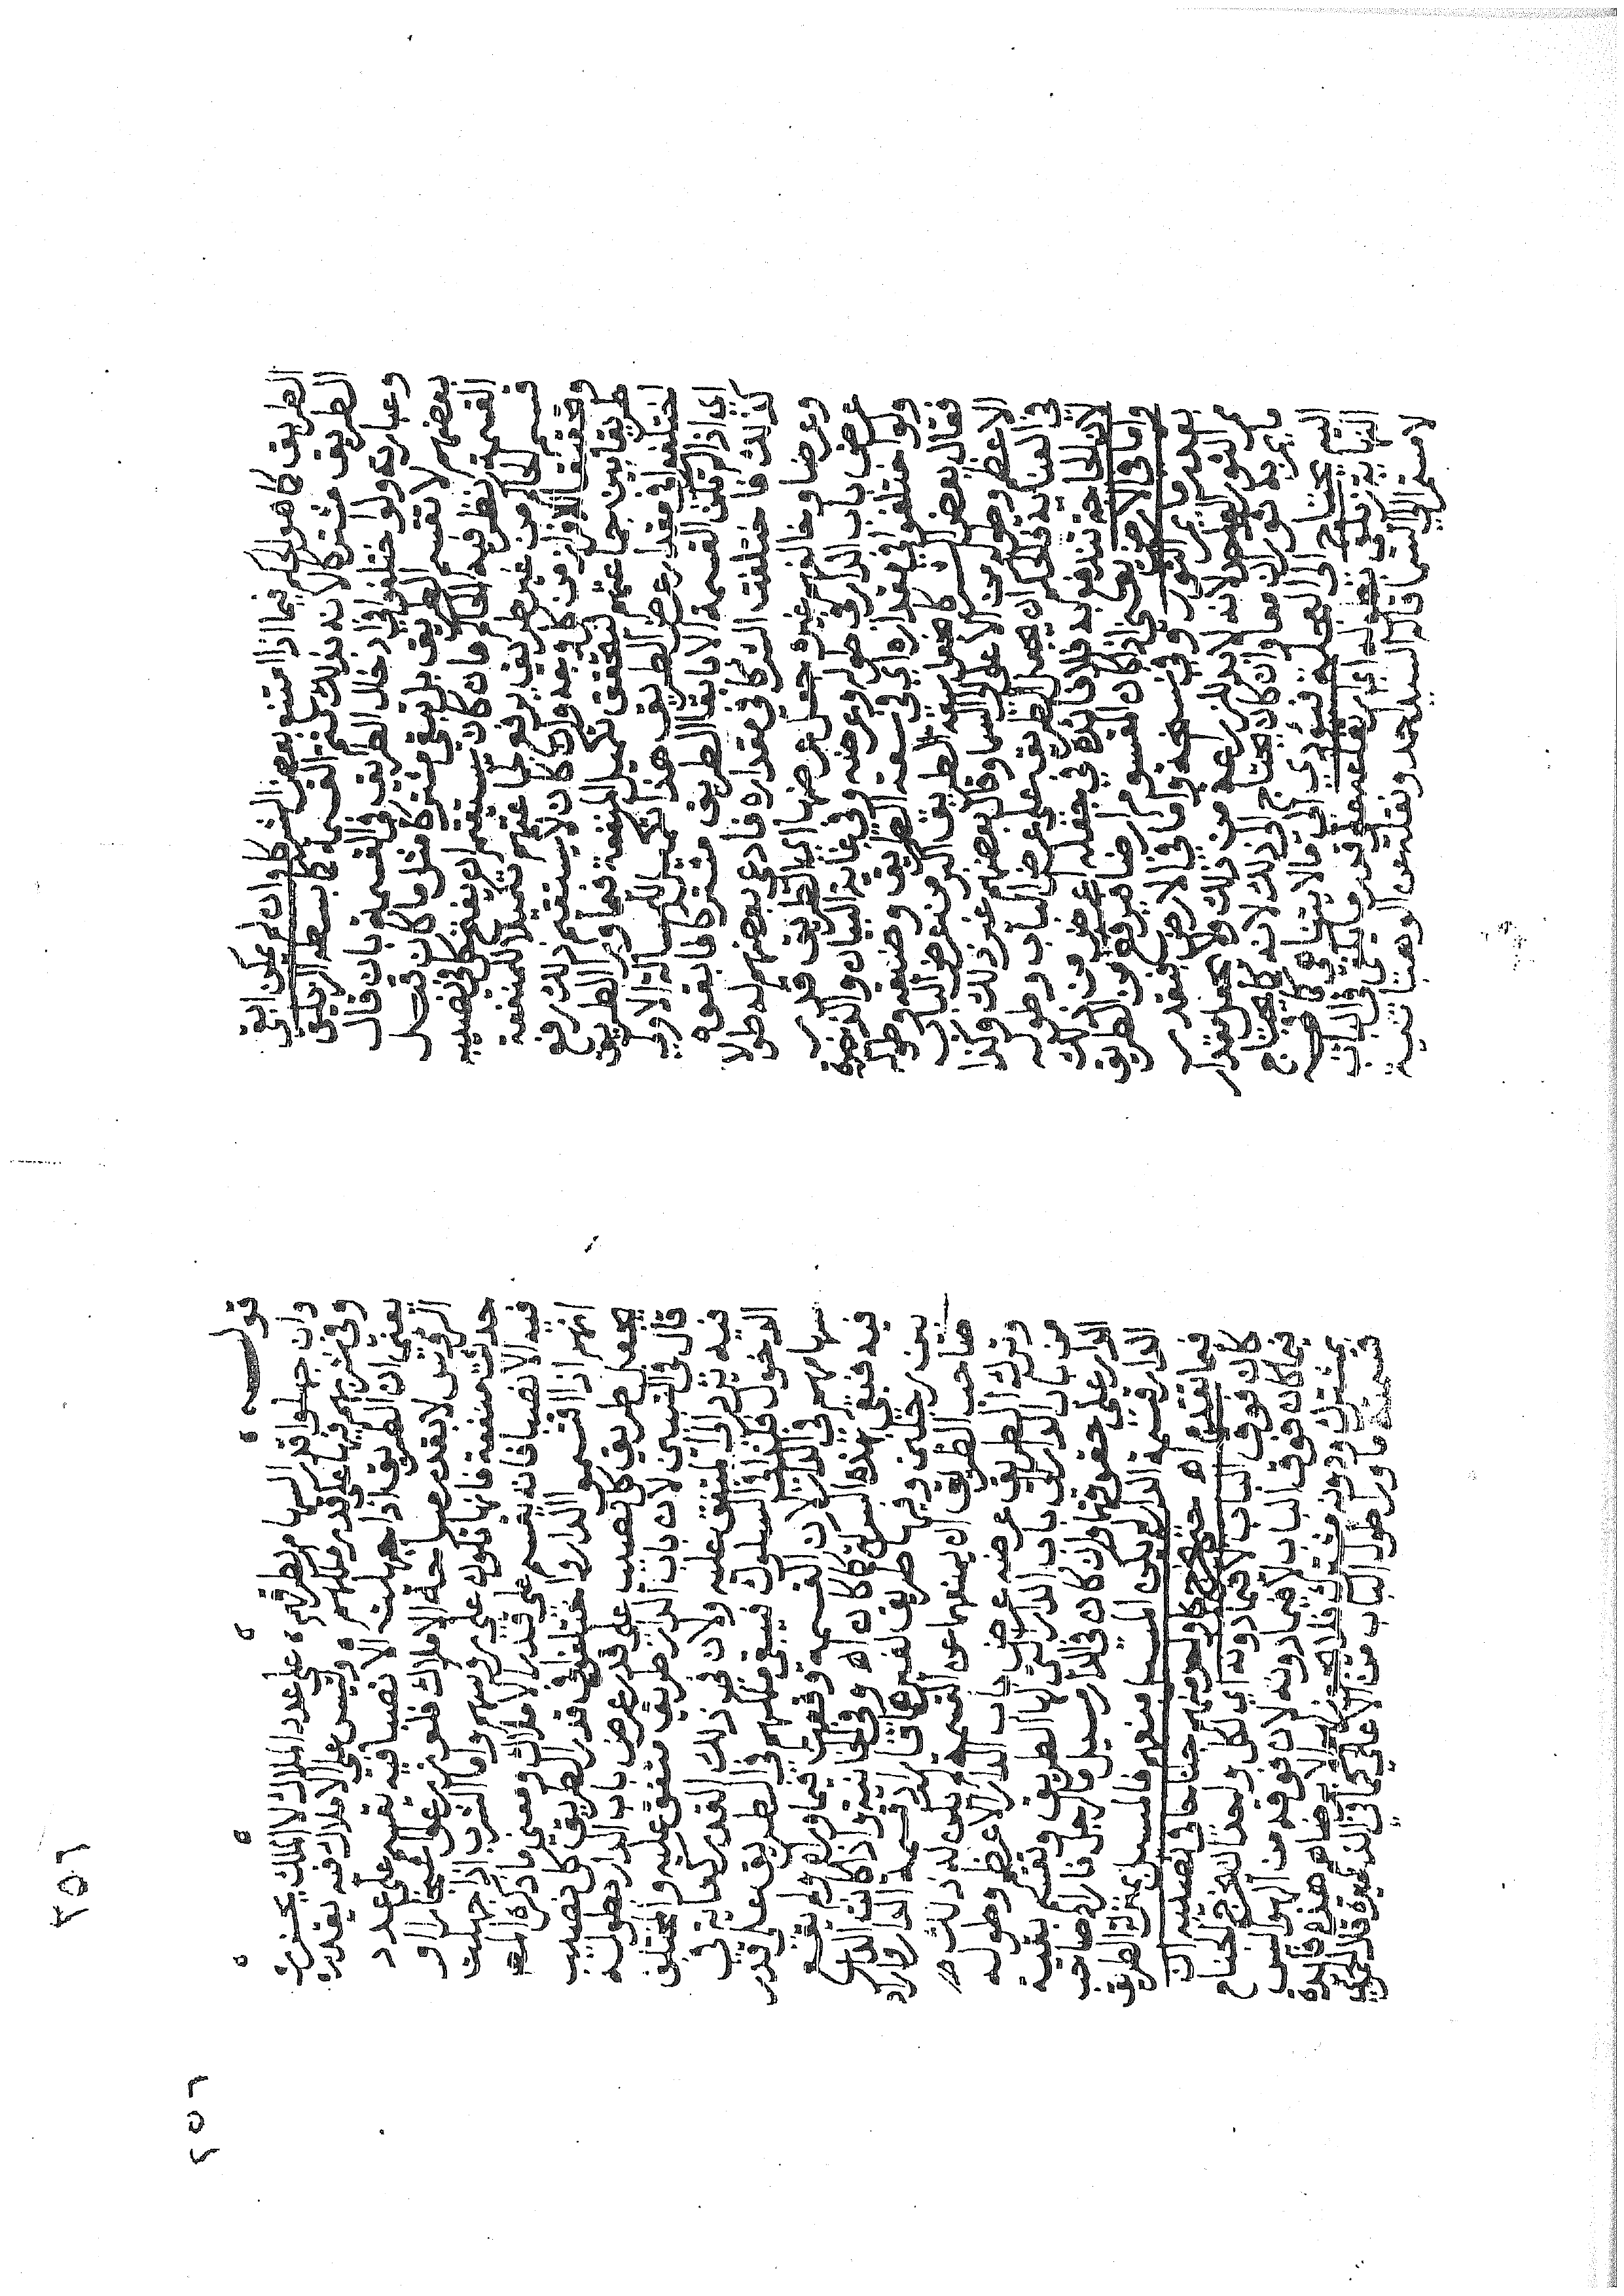 الطريق كما هو الحكم فيما اذا امتنع بعض الشركا وان لم يمكن ابقى
الطريق مشتركا لانه بذلك تتم القسمة كما بسطه الزيلعي
وعبارته ولو اختلفوا في ادخال الطريق في القسمة بان قال
بعضهم لا تقسم الطريق بل تبقى مشتركا مثل ما كان قبل
القسمة نظر فيه الحاكم فان كان يستقيم ان يفتح كل في نصيبه
قسم الحاكم من غير طريق يرفع لجماعتهم تكميلا للمنفعة
وتحقيقا للافراز من كل وجه وان كان لا يستقيم ذلك رفع
طريقا بين جماعتهم لتحقق تكميل المنفعة فيما ورا الطريق
اختلفوا في مقدار عرض الطريق هذا تكميل للمسالة الاولى
اي اذا لم تكن القسمة الا بابقا الطريق مشتركا فابقوه
كذلك فاختلفت الشركا في مقداره فادعى بعضهم له طولا
وعرضا وخالفه غيره جعل عرضها اي الطريق قدر
عرض باب الدار في طوله وعرضه وفي غاية البيان والذخيرة
ولو اختلفوا في مقداره اي في سعة الطريق وضيقه وطوله
فقال بعض الشركا سعة الطريق اكبر من عرض الباب
الاعظم وطوله من الاعلى الى السما وقال بعضهم غير ذلك وكذا
في العناية فالحاكم يجعل الطريق على عرض الباب وطوله
لان الحاجة تندفع به ولا فائدة في جعله اعرض من ذلك
واما في الارض يعني اذا كان المقسوم ارضا فيرفع من الطريق
بقدر ما يمر الثور وفي نسخة واما في الارض فبقدر
ممر الثور لانه لابد للزراعة من ذلك ولا يجعل مقدار
ما يمر به ثوران معا وان كان يحتاج الى ذلك لانه كما يحتاج
اليه يحتاج الى العجلة فيودي الى ما لا يتناهى
النهاية بقوله اي في الباب
الى السما قاله السيد احمد ونقله عن الوهبانية
قوله
وان جهلوا قدر السهام لطرقهم على عدد الملاك لا الملك يحزر
وفي شربهم فيها على قدر ملكهم وليس على الاملاك فيه يقدر
يعني ان الطريق اذا جهلت الانصبا فيه تقسم على عدد
الروس لا بقدر مساحة الاملاك
حدث منفعة فانها تكون على روسهم واما الشرب اذا جهلت
فيه الانصبا فانه يقسم على قدر الاملاك ومعنى ما ذكره المص
انهم اذا اقتسموا الدار واختلفوا في قدر الطريق كل نصيب
يجعل طريق كل نصيب على قدر عرض باب الدار بطوله
قال في التبيين لان باب الدار طريق متفق عليه والمختلف
فيه يرد الى المتفق عليه ولان في ذلك القدر كفاية في
الدخول فكذا في السلوك فيبقى ملكهم في الطريق على قدر
سهامهم في الدار لان القسمة وقعت فيما وراه ولم يقع
فيه فيبقى كما كان اه وفي الخانية اذا كانت الدار
بين رجلين وفيها طريق لغيرهما فاراد قسمة الدار واراد
صاحب الطريق ان يمنعهما عن القسمة لم يكن له ذلك
ويترك الطريق عرضه عرض باب الدار الاعظم وطوله
من باب الدار الى باب الدار التي لها الطريق ويقسم بقية
الدار على حقوقهما وان كان في الدار مسيل ما لرجل فاراد صاحب
الدار قسمة الدار لم يكن لصاحب المسيل منعهم فالمسيل بمنزلة الطريق
فيما تقدم اه حتى يخرج كل واحد منهم جناحا في نصيبه ان
كان فوق الباب لا فيما دونه اي لكل واحد ان يخرج الجناح
فيما كان فوق الباب لا فيما دونه لان فوق قدر من الهوا ليس
بمشترك ودونه مشترك فلا يجوز الا برضاهم
قسمة ما ورا طول الباب من الاعلى كما في الذخيرة
٢٥٦
٢٥٦